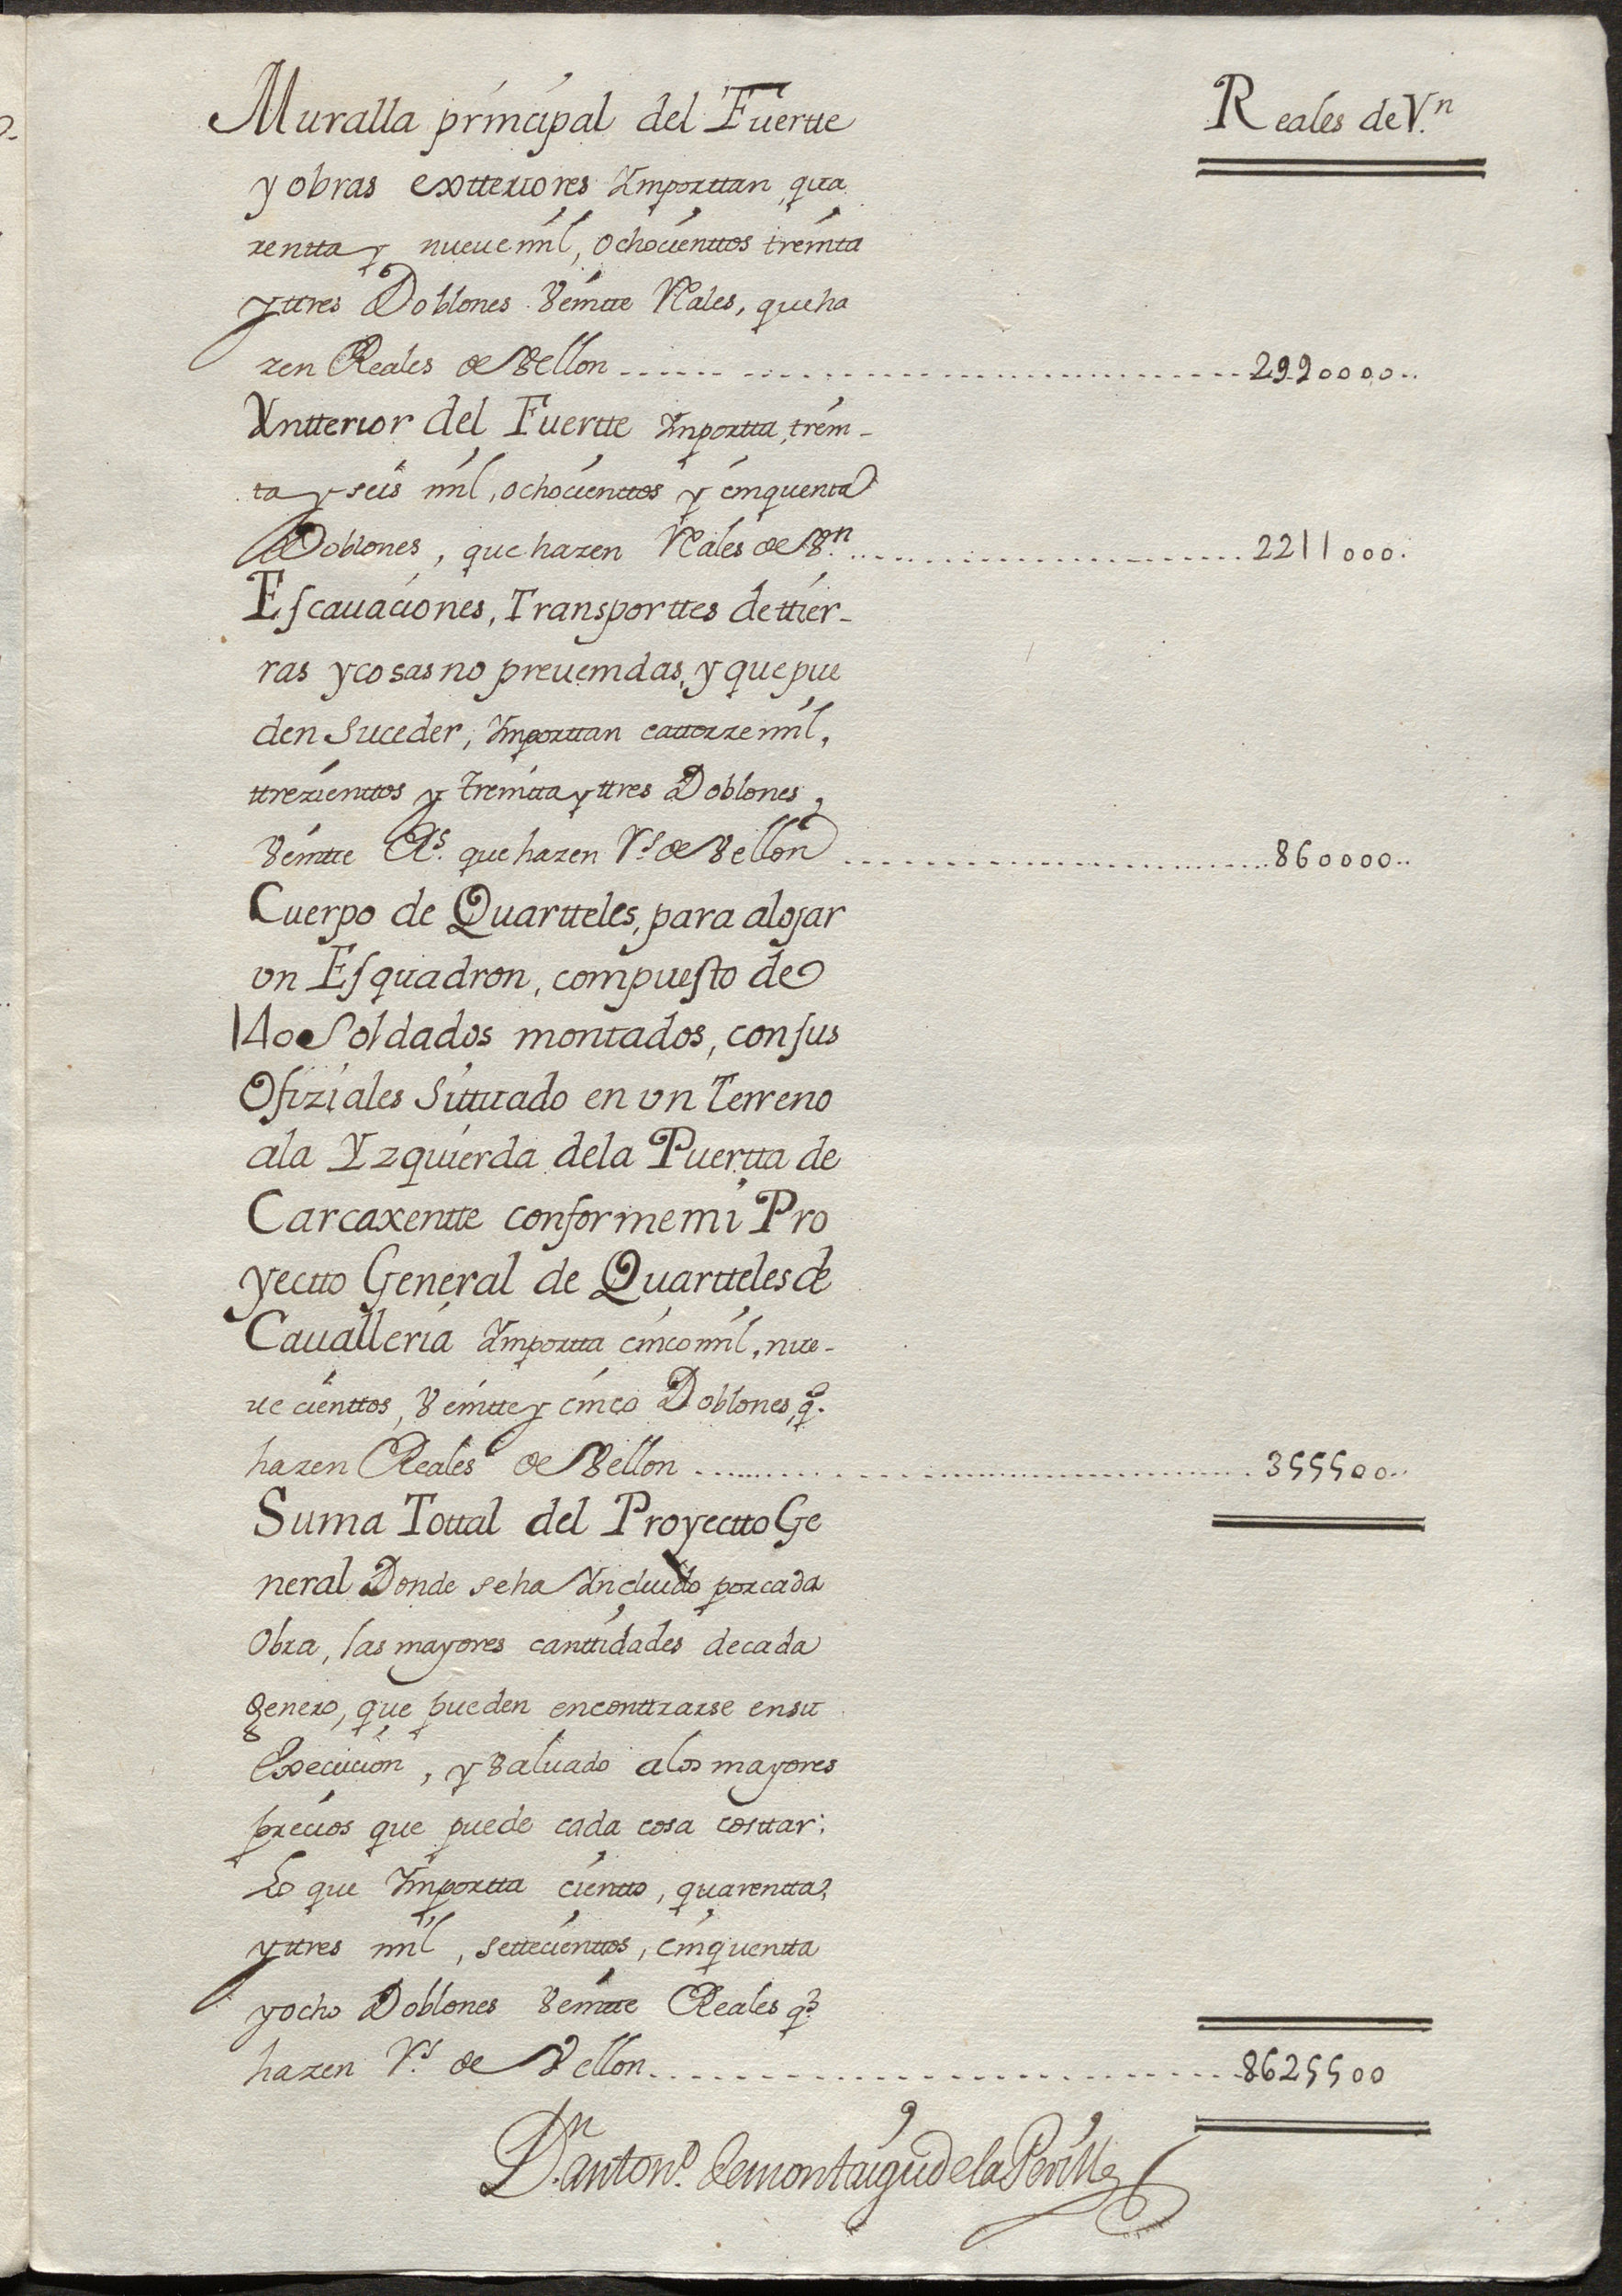 Reales de V.n
Muralla principal del Fuertte
y obras extteriores Ymporttan, qua
rentta y nueue mil, ochocienttos treinta
y ttres Doblones Veintte Rales, que ha
zen Reales de Vellon 2990000
Yntterior del Fuertte Ymportta, trein-
ta y seis mil, ochocienttos y cinquenta
Doblones, que hazen Rales de V.n 2211000.
Escauaciones, Transporttes de ttier-
ras y cosas no preuenidas, y que pue
den Suceder, Ymporttan cattorze mil,
ttrezienttos y treintta y ttres Doblones,
Veintte Rs. que hazen Rs. de Vellon 860000
Cuerpo de Quartteles, para alojar
vn Esquadron, compuesto de
140 Soldados montados, con sus
Ofiziales Sittuado en vn Terreno
ala Yzquierda dela Puertta de
Carcaxentte conforme mi Pro
yectto General de Quartteles de
Cauallería Ymportta cinco mil, nue-
ue cienttos, Veintte y cinco Doblones, q.
hazen Reales de Vellon 355500
Suma Tottal del Proyectto Ge
neral Donde se ha Yncluido por cada
Obra, las mayores canttidades de cada
genero, que pueden enconttrarse en su
Execucion, y Valuado alos mayores
precios que puede cada cosa costtar:
Lo que Ymportta cientto, quarentta,
y ttres mil, settecienttos, cinquentta
y ocho Doblones Veintte Reales q.
hazen Rs. de Vellon 8625500
D.n anton.o demontaigu dela Perille